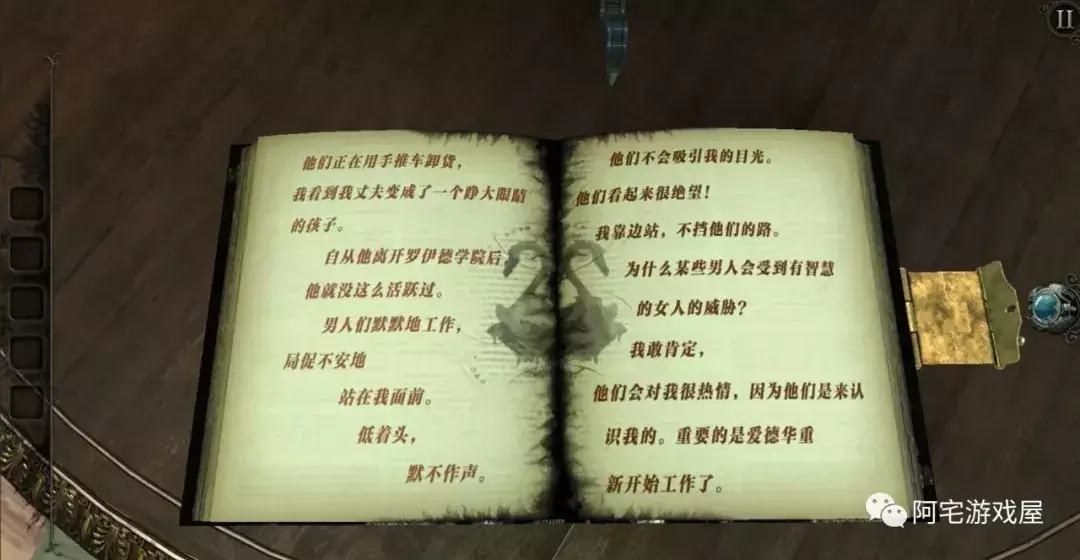 他们正在用手推车卸货，
我看到我丈夫变成了一个睁大眼睛
的孩子。
自从他离开罗伊德学院后，
他就没这么活跃过。
男人们默默地工作，
局促不安地
站在我面前。
低着头，
默不作声。
他们不会吸引我的目光。
他们看起来很绝望！
我靠边站，不挡他们的路。
为什么某些男人会受到有智慧
的女人的威胁？
我敢肯定，
他们会对我很热情，因为他们是来认
识我的。重要的是爱德华重
新开始工作了。
阿宅游戏屋